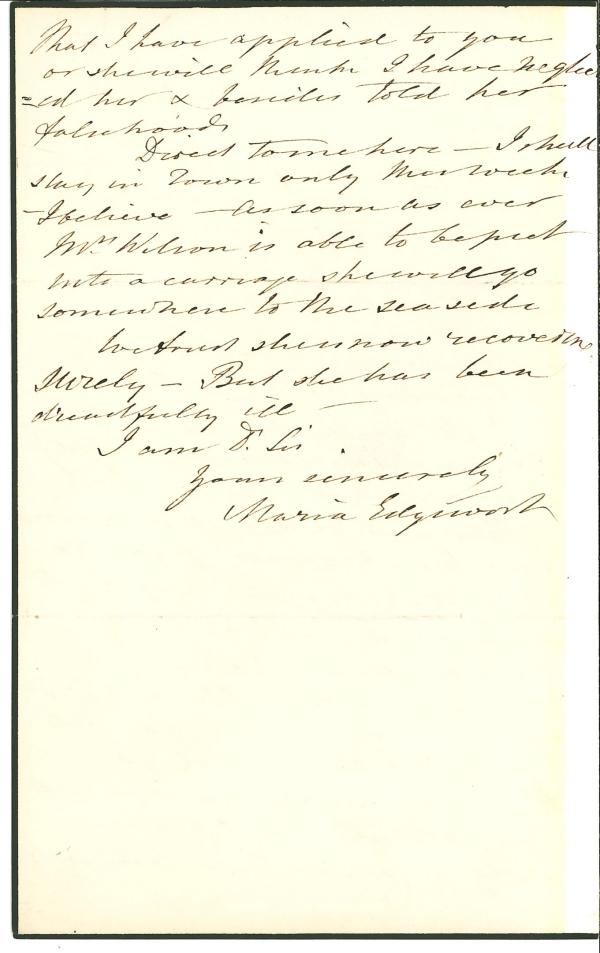 that I have applied to you
or she will think I have neglec
=ed her & besides told her
falsehoods
Direct to me here — I shall
stay in Town only this week
– I believe – As soon as ever
Mrs Wilson is able to be put
into a carriage she will go
somewhere to the sea side
We trust she is now recovering
surely — But she has been
dreadfully ill —
I am Dr. Sir
Yours sincerely
Maria Edgeworth